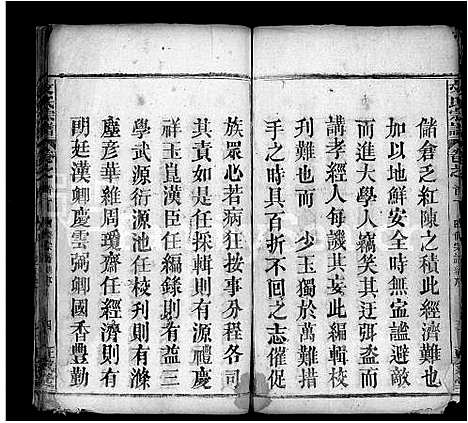 儲倉乏紅陳之積此經濟難也
加以地鮮安土時無寍謐避敵
而進大學人竊笑其迂張盍而
講孝經人每譏其妄此編輯校
刋難而 少玉獨於萬難措
手之時具百折不回之志催促
族眾必若病狂按事分各司
其責如是任採輯則有源禮慶
祥玉崑漢臣任編錄則有益三
學武源衍源池任校刋則有滌
塵彥華維周瓊齋任經濟則有
朗廷漢卿慶雲弼卿國香豐勤